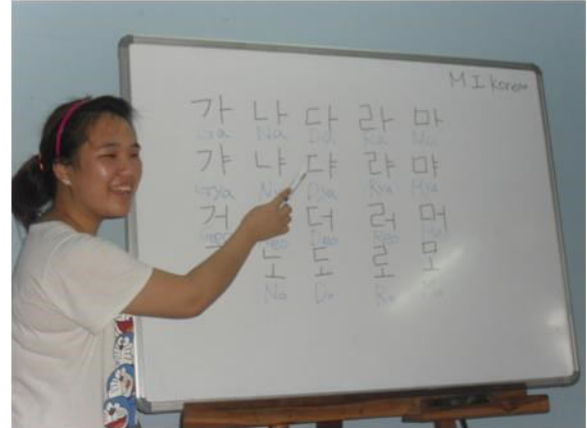 M I Korean
가 나 다 라 마
Na Da Ra Ma
갸 냐 댜 랴 먀
Gya Dya Rya Mya
거 더 러 머
Geo Neo Deo Reo
노 도 로 모
No Do Ro Mo